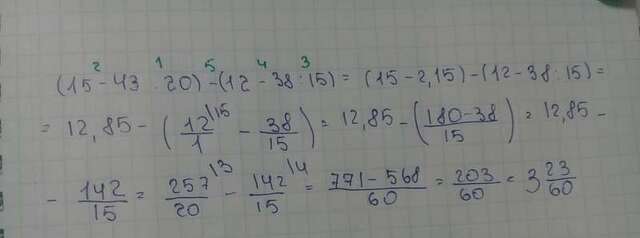 2 1 5 4 3
(15 - 43 : 20) - (12 - 38 : 15) = (15 - 2,15) - (12 - 38 : 15) =
= 12,85 - (12/1 |15 - 38/15) = 12,85 - (180 - 38/15) = 12,85 -
- 142/15 = 257/20 |3 - 142/15 |4 = 771 - 568/60 = 203/60 = 3 23/60